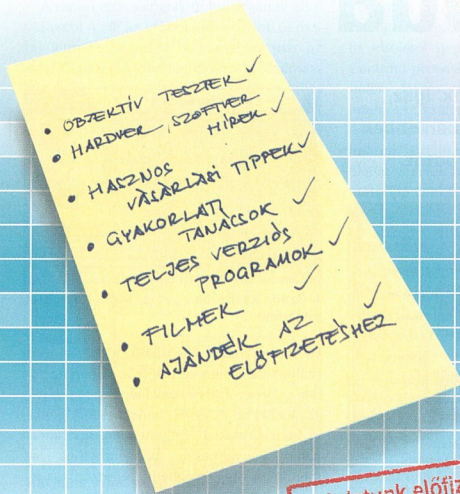 • OBJEKTÍV TESZTEK ✓
• HARDVER, SZOFTVER
HÍREK ✓
• HASZNOS
VÁSÁRLÁSI TIPPEK ✓
• GYAKORLATI
TANÁCSOK ✓
• TELJES VERZIÓS
PROGRAMOK ✓
• FILMEK ✓
• AJÁNDÉK AZ
ELŐFIZETÉSHEZ ✓